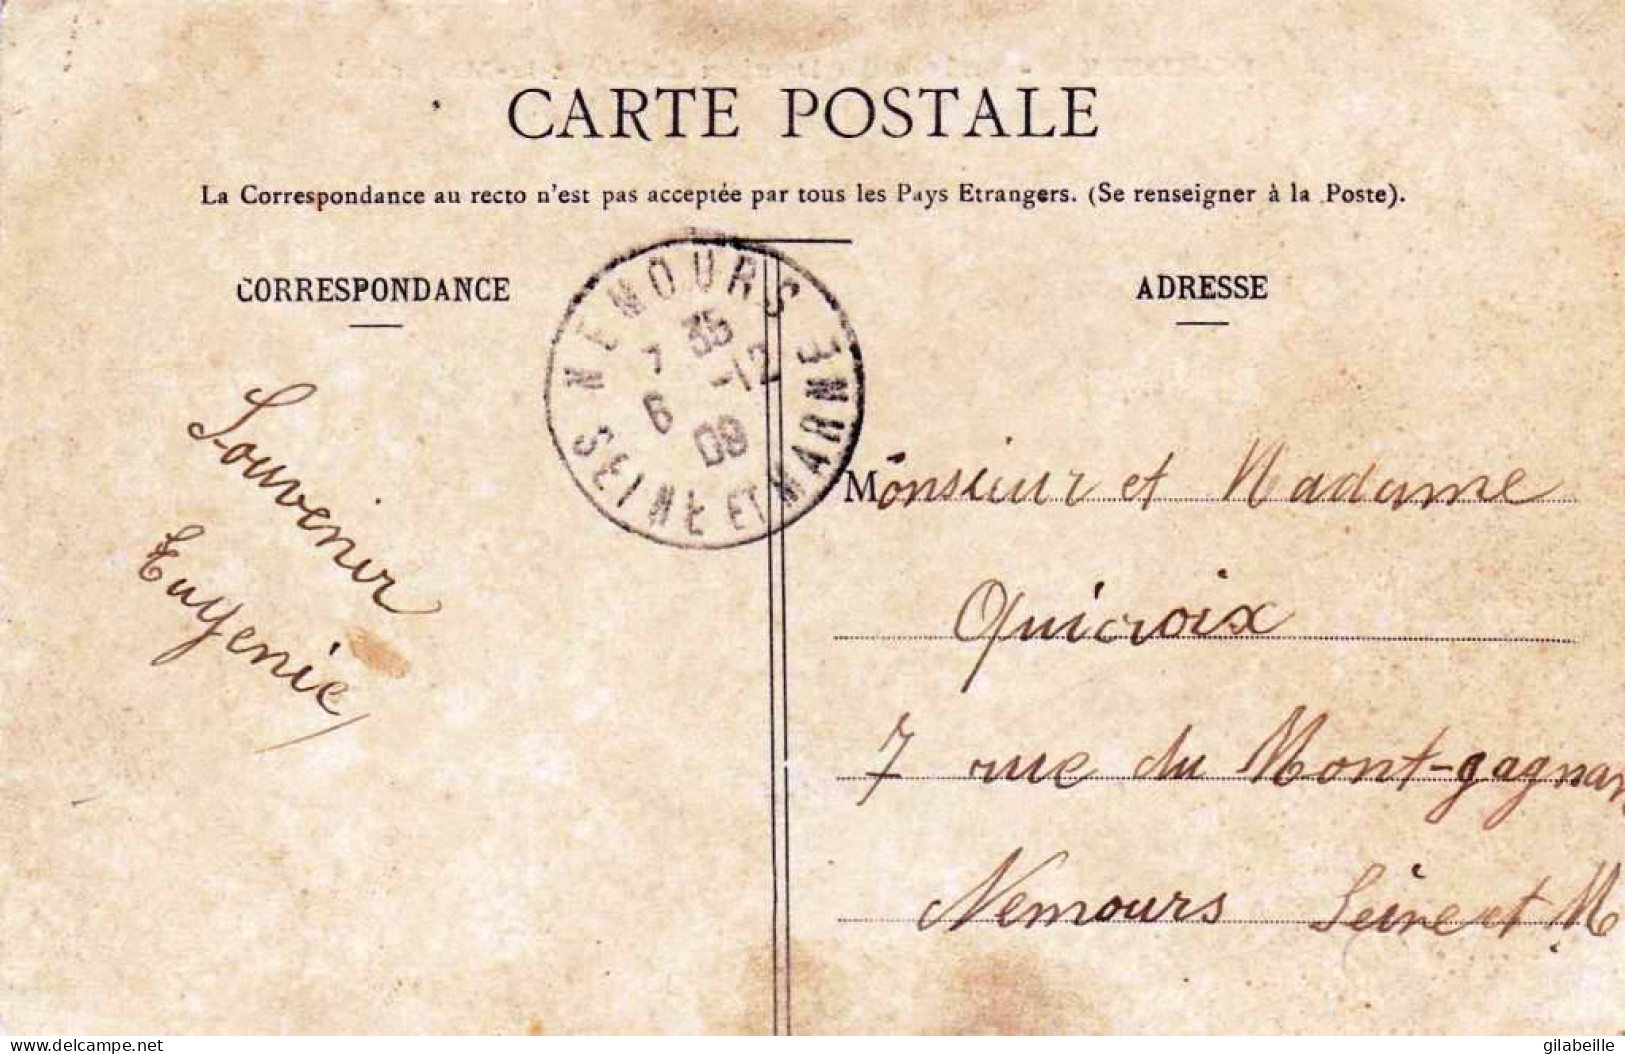 CARTE POSTALE
La Correspondance au recto n'est pas acceptée par tous les Pays Etrangers. (Se renseigner à la Poste).
CORRESPONDANCE
ADRESSE
NEMOURS
35
7 -12
6 09
SEINE ET MARNE
Souvenir
Eugenie
Monsieur et Madame
Quicroix
7 rue du Mont-gagnan
Nemours Seine et M
www.delcampe.net
gilabeille